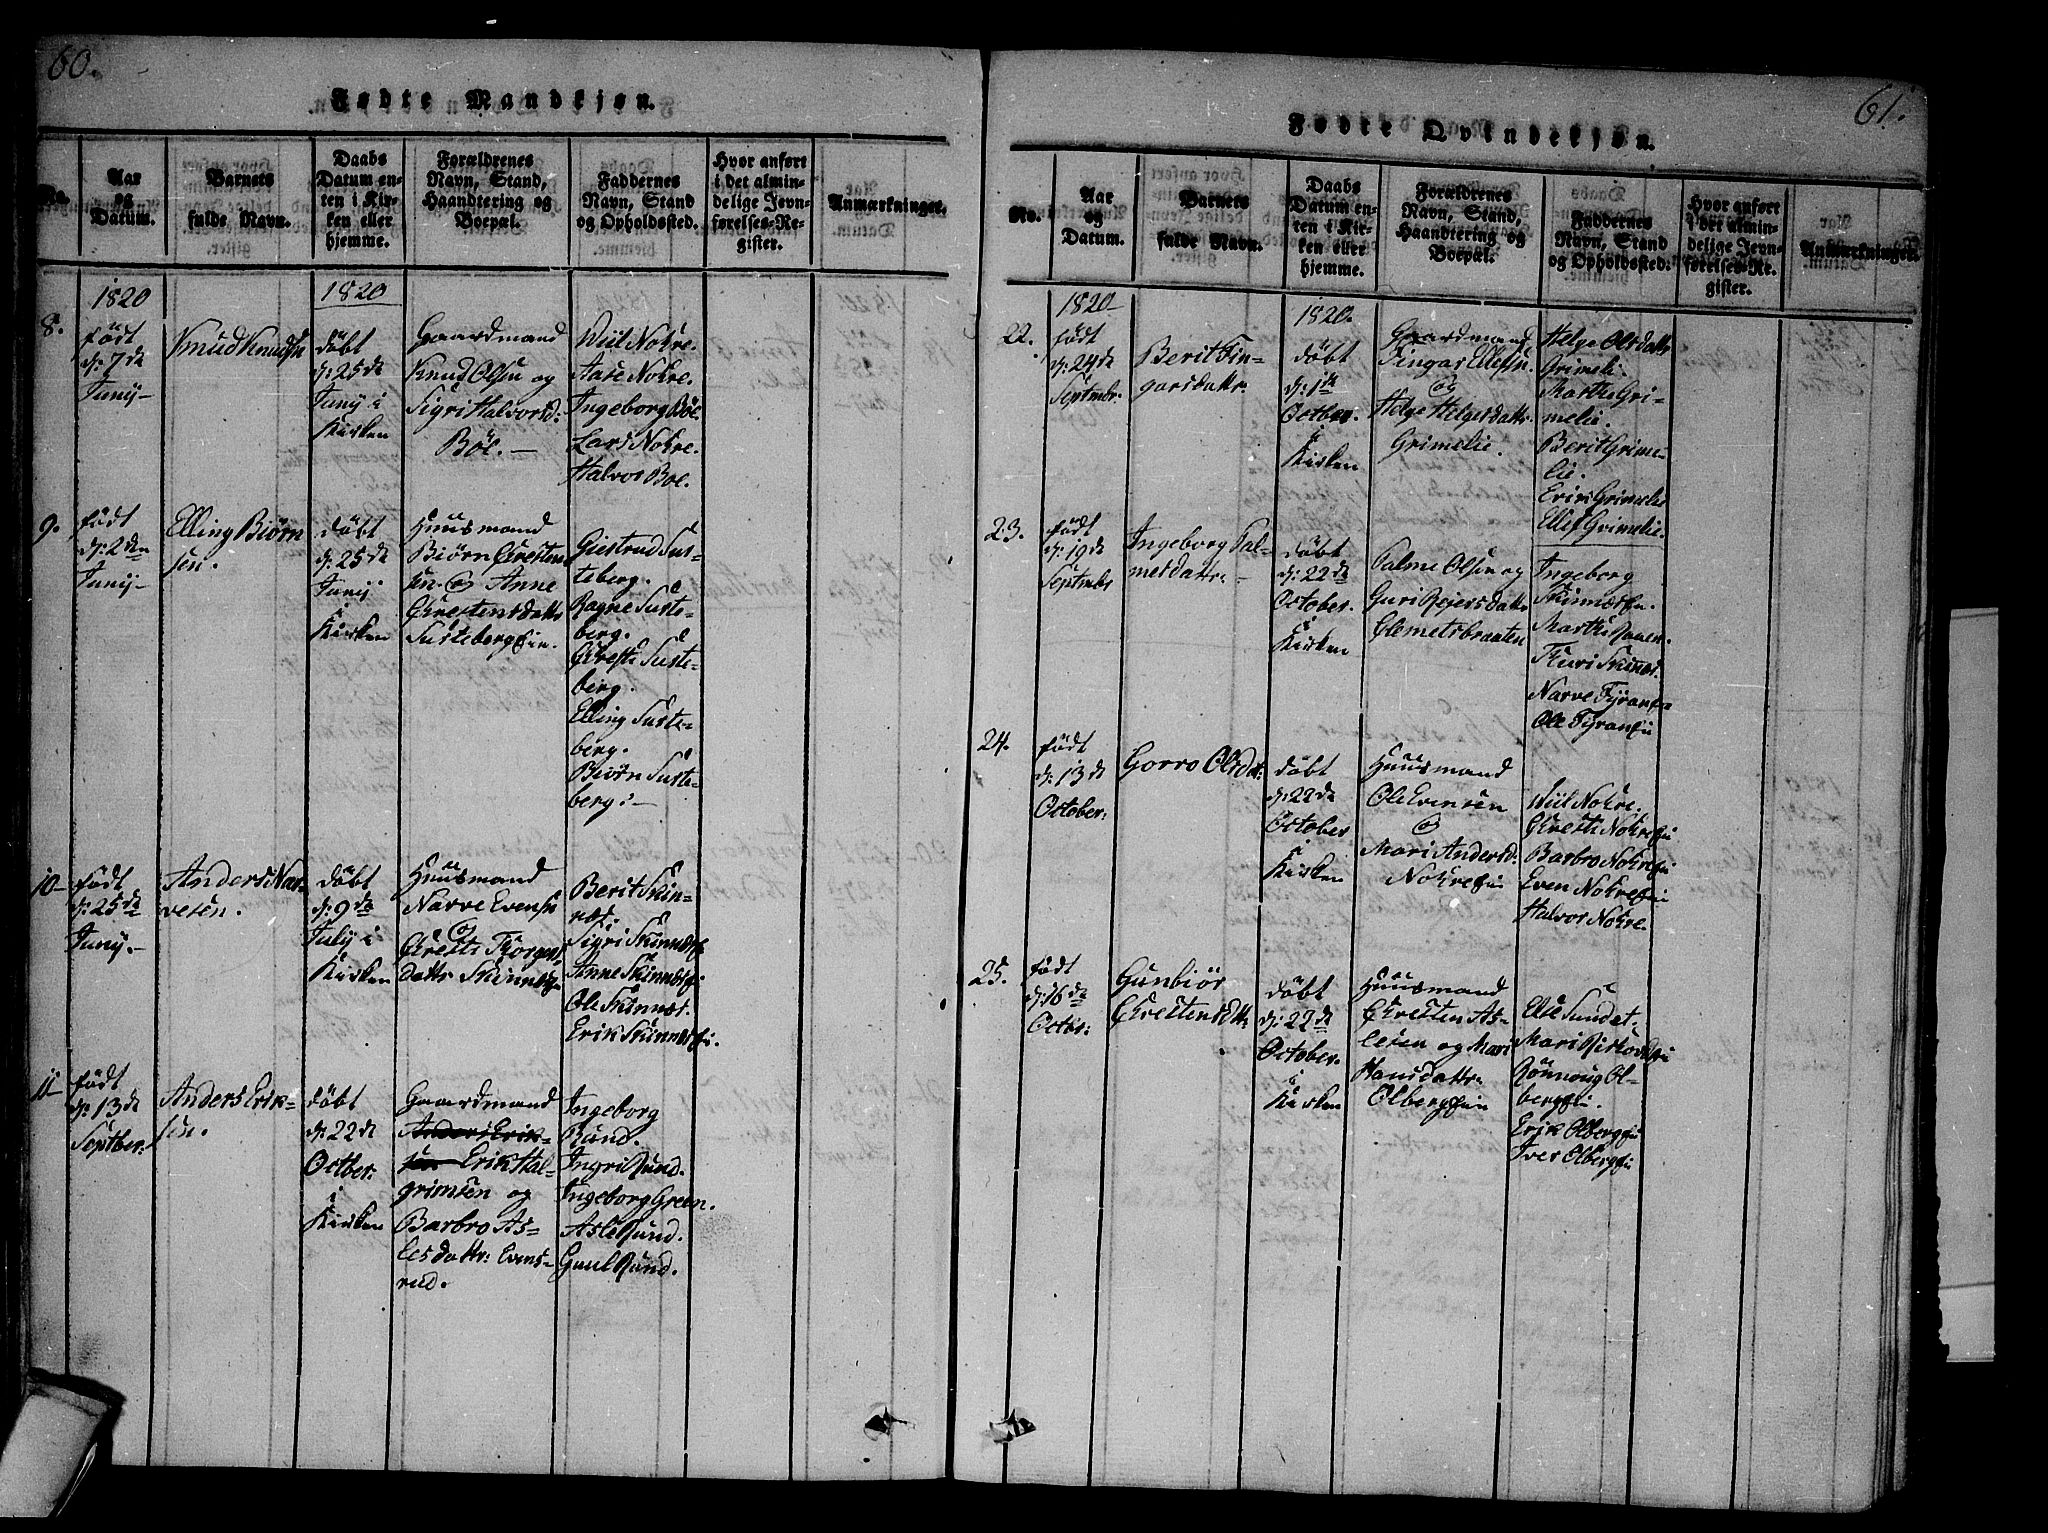 60.
Fødte Mandkjøn.
No.
Aar
og
Datum.
Barnets
fulde Navn.
Daabs
Datum en-
ten i Kir-
ken eller
hjemme.
Forældrenes
Navn, Stand,
Haandtering og
Boepæl.
Faddernes
Navn, Stand
og Opholdssted.
Hvor anført
i det almin-
delige Jevn-
førelses-Re-
gister.
Anmærkninger.
1820
1820
8.
født
d: 7de
Junÿ-
Knud Knudsn
döbt
d: 25de
Junÿ i
Kirken
Gaardmand
Knud Olsen og
Sigri Halvorsd:
Böe.-
Wiil Nokre.
Aase Nokre.
Ingeborg Böe.
Lars Nokre.
Halvor Boe.
9.
født
d: 2den
Junÿ-
Elling Biörn
sen.
döbt
d: 25de
Junÿ
i
Kirken
Huusmand
Biörn Christen
sen og Anne
Christensdattr
Susteberg
Giestrud Sus-
teberg.
Ragne Suste-
berg.
Christi Suste-
berg.
Elling Suste-
berg.
Biörn Suste-
berg:-
10-
født
d: 25de
Junÿ.-
Anders Nar-
vesen.
döbt
d: 9de
Julÿ i
Kirken
Huusmand
Narve Evensn
og
Christi Thorgers
dattr
Berit Skin-
næs.
Sigri
Anne
Ole Skinnæs.
Erik
11-
født
d: 13de
Septber:
Anders Erik-
sen.
döbt
d: 22de
Octber.
i
Kirken
Gaardmand
Anders Erik-
sen Erik Hal-
grimsen og
Barbro As-
lesdattr: Evens-
rud.
Ingeborg
Rund.
Ingri Rund.
Ingeborg Green.
Asle Rund.
Guul Rund.
61.
Fødte Qvindekjøn.
No.
Aar
og
Datum.
Barnets
fulde Navn.
Daabs
Datum en-
ten i Kir-
ken eller
hjemme.
Forældrenes
Navn, Stand,
Haandtering og
Boepæl.
Faddernes
Navn, Stand
og Opholdssted.
Hvor anført
i det almin-
delige Jevn-
førelses-Re-
gister.
Anmærkninger.
1820-
1820.
22.
født
d: 24de
Septmbr.
Berit Fin-
garsdattr.
döbt
d: 1ste
Octber.
i
Kirken
Gaardmand
Fingar Ellefsn.
og
Helge Helgesdattr
Grimelie.
Helge Olsdattr
Grimeli.
Marthe Gri-
melie.
Berit Grime-
lie.
Erik Grimelie
Ellef Grimelie.
23.
født
d: 19de
Septmbr
Ingeborg Pal-
mesdattr-
döbt
d: 22de
October.
i
Kirken
Palme Olsen og
Guri Rejersdattr
Clemetsbraaten
Ingeborg
Marthe
Thuri Skinnæs.
Narve
Ole
24.
født
d: 13de
October:
Gorro Olsdat:
döbt
d: 22de
October
i
Kirken
Huusmand
Ole Evensen
og
Mari Andersd:
Wiil Nokre.
Christi
Barbro
Even
Halvor Nokre.
25.
født
d: 16de
Octbr:
Gunbiör
Christensdattr
döbt
d: 22de
October.
i
Kirken
Huusmand
Christen As-
lesen og Mari
Hansdattr
Else Sundet.
Mari
Rönnoug Ol-
Erik
Iver